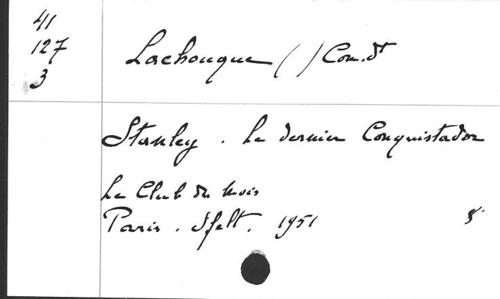 41
127
3
Lachouque ( ) Com.dt
Stanley . Le dernier Conquistador
Le Club du mois
Paris . Sfelt . 1951 8°